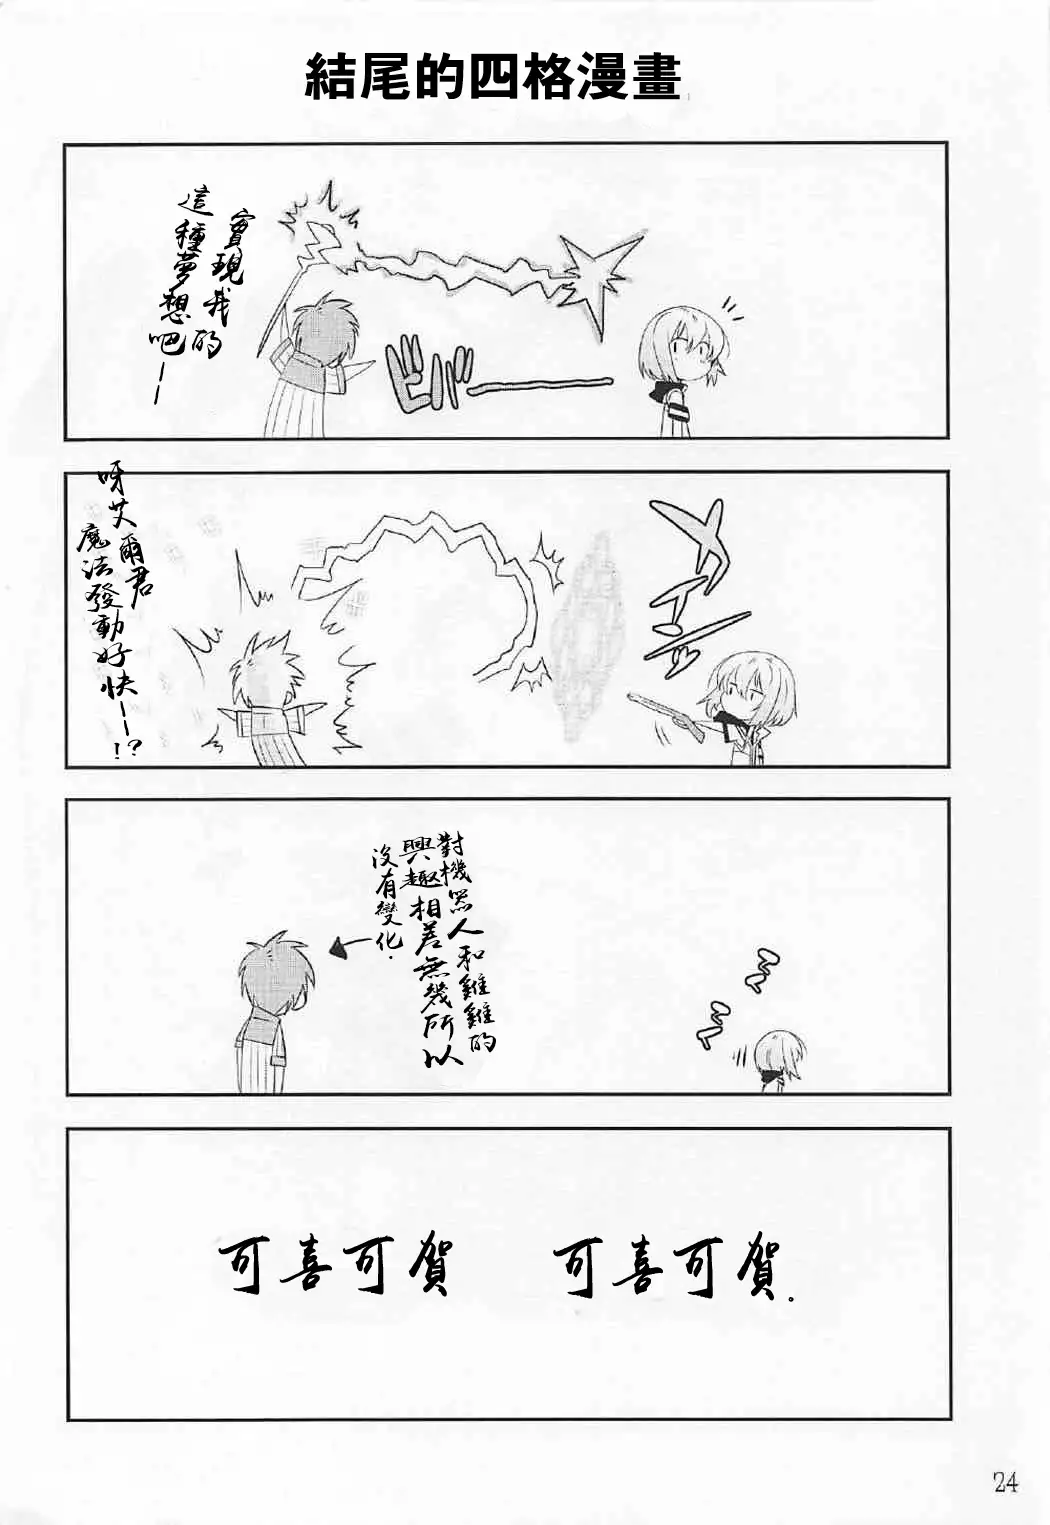 結尾的四格漫畫
實現我的
這種夢想吧——
ビバー
呀艾爾君
魔法發動好快——!?
對機器人和雞雞的
興趣相差無幾所以
沒有變化.
可喜可賀 可喜可賀.
24